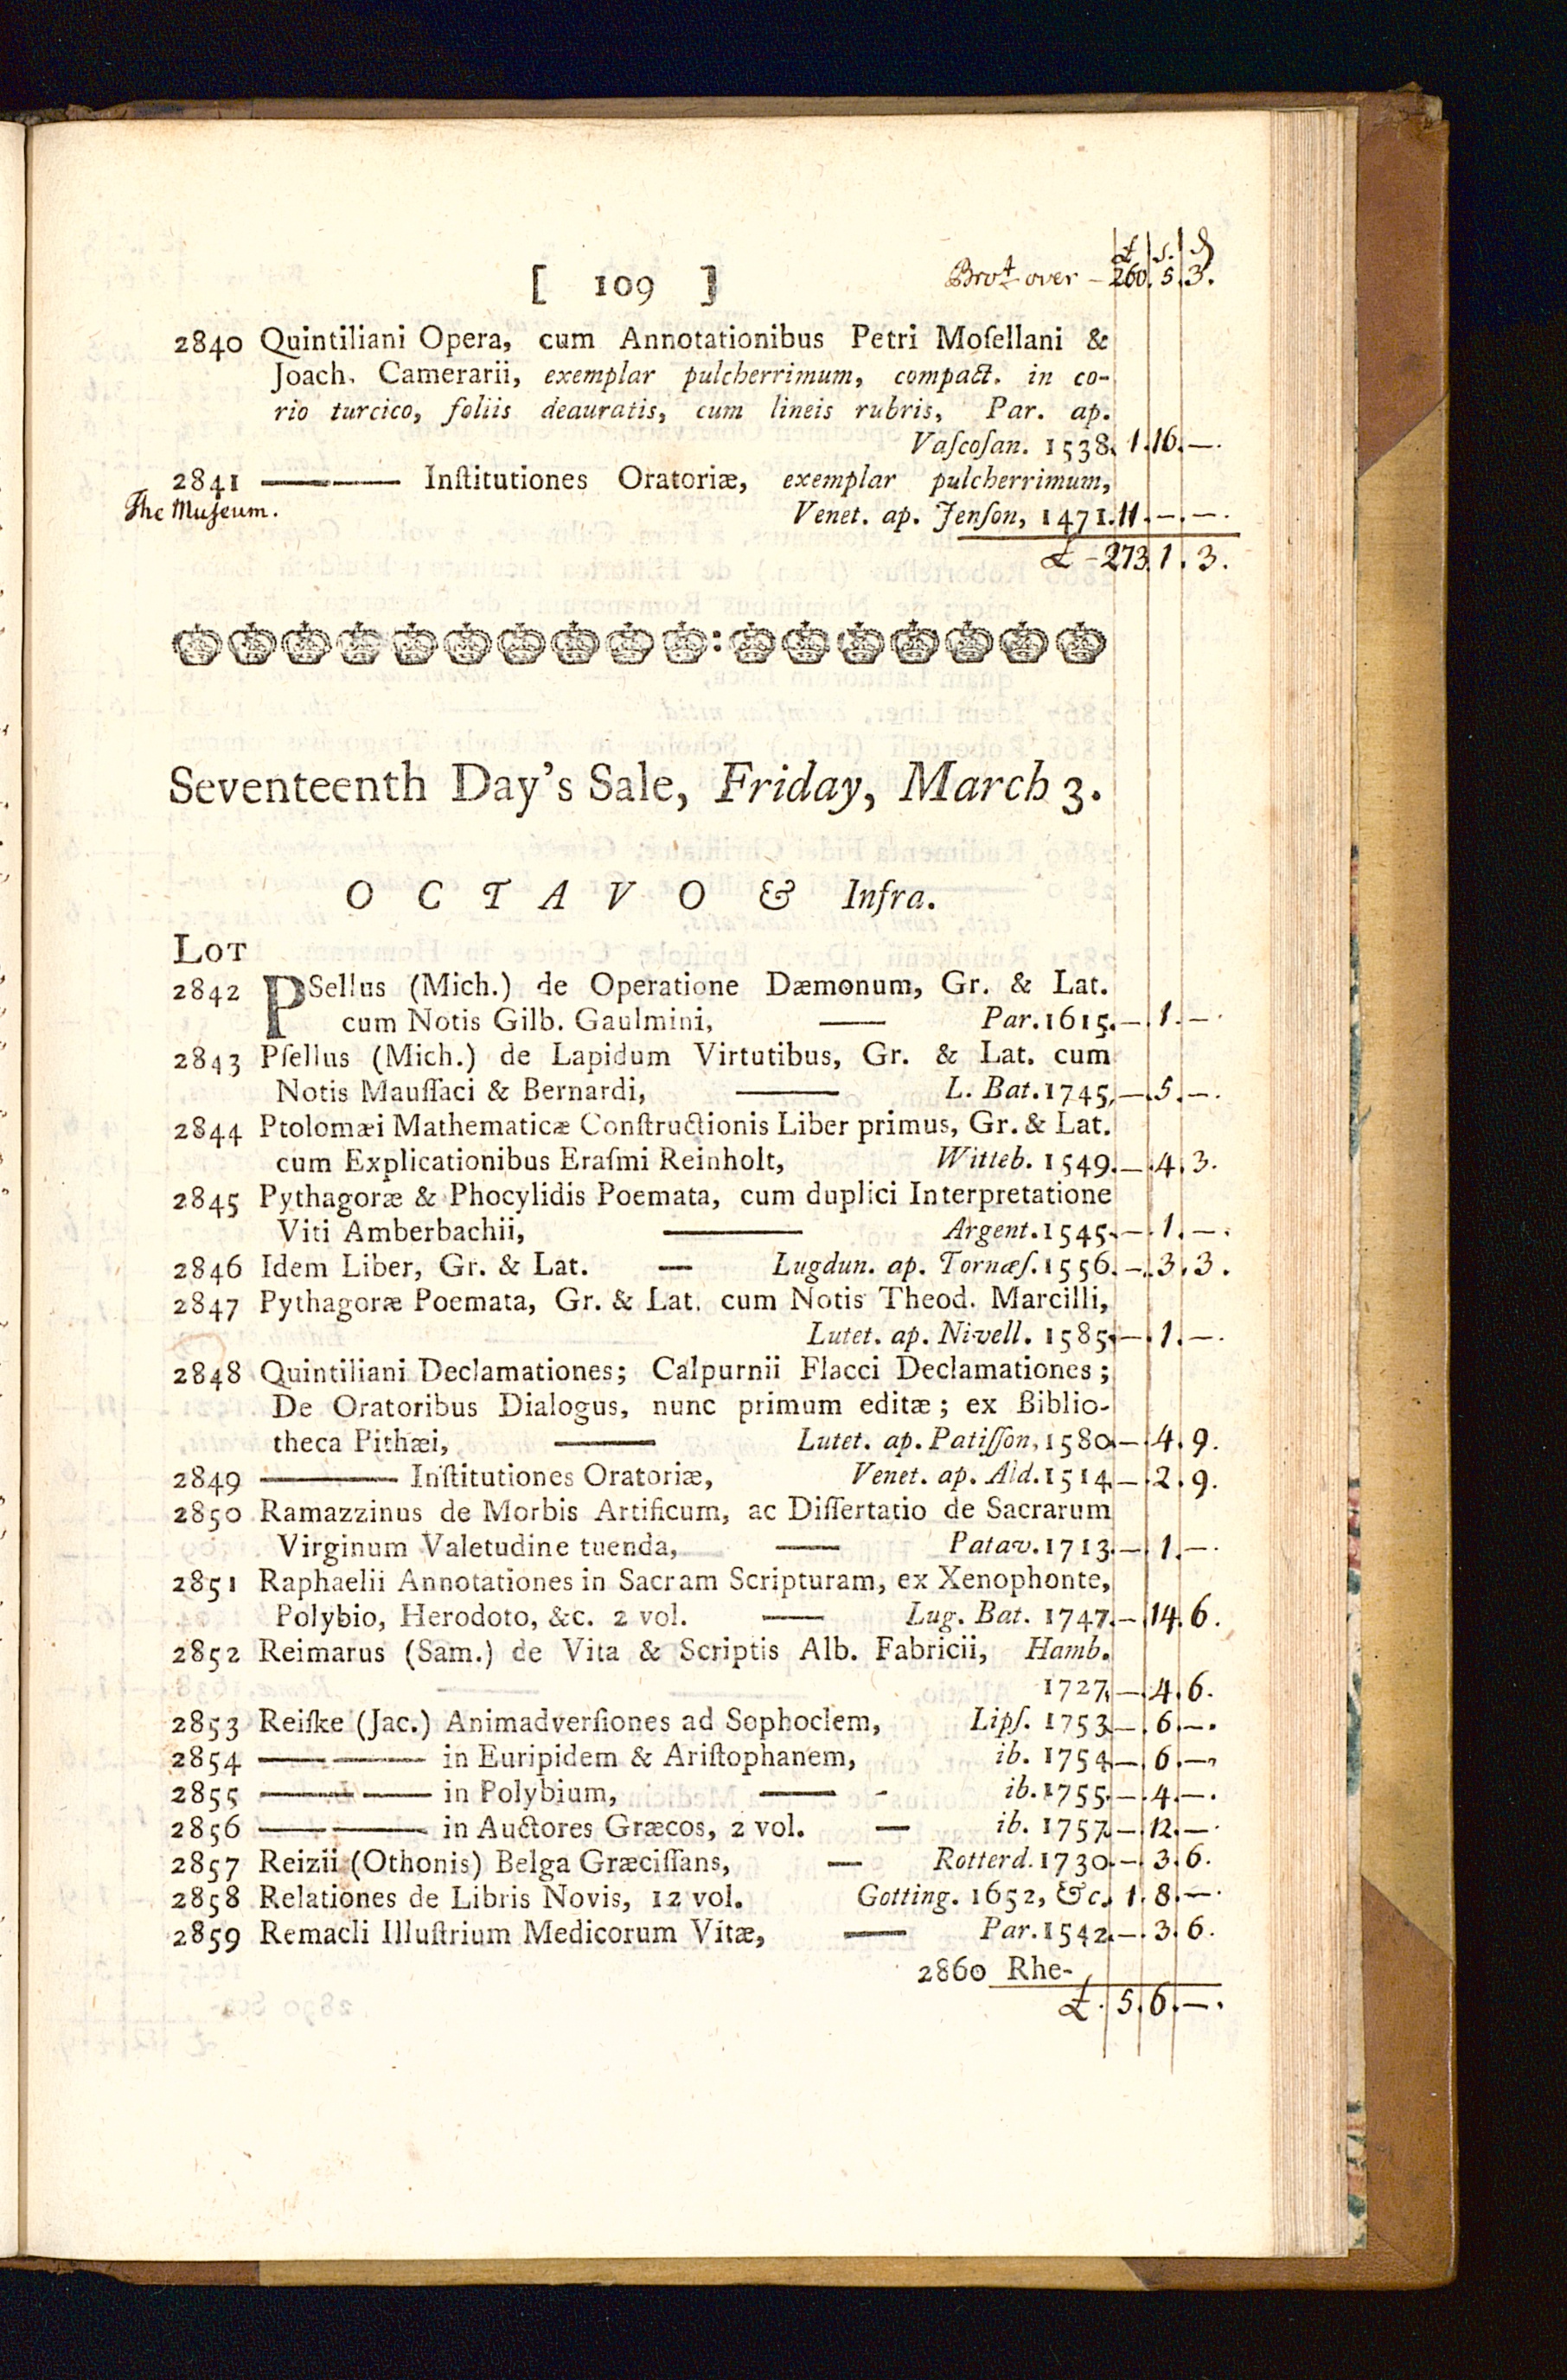 £ s. d
[ 109 ] Brot over - 260. 5. 3.
2840 Quintiliani Opera, cum Annotationibus Petri Moſellani &
Joach. Camerarii, exemplar pulcherrimum, compact. in co-
rio turcico, foliis deauratis, cum lineis rubris, Par. ap.
Vaſcoſan. 1538. 1. 16. —.
2841 ——— Inſtitutiones Oratoriæ, exemplar pulcherrimum,
The Museum. Venet. ap. Jenſon, 1471. 11. —. —.
£ - 273. 1. 3.
Seventeenth Day's Sale, Friday, March 3.
OCTAVO & Infra.
LOT
2842 PSellus (Mich.) de Operatione Dæmonum, Gr. & Lat.
cum Notis Gilb. Gaulmini, — Par. 1615. —. 1. —.
2843 Pſellus (Mich.) de Lapidum Virtutibus, Gr. & Lat. cum
Notis Mauſſaci & Bernardi, — L. Bat. 1745, —. 5. —.
2844 Ptolomæi Mathematicæ Conſtructionis Liber primus, Gr. & Lat.
cum Explicationibus Eraſmi Reinholt, Witteb. 1549. —. 4. 3.
2845 Pythagoræ & Phocylidis Poemata, cum duplici Interpretatione
Viti Amberbachii, — Argent. 1545. —. 1. —.
2846 Idem Liber, Gr. & Lat. — Lugdun. ap. Tornæſ. 1556. —. 3. 3.
2847 Pythagoræ Poemata, Gr. & Lat. cum Notis Theod. Marcilli,
Lutet. ap. Nivell. 1585. —. 1. —.
2848 Quintiliani Declamationes; Calpurnii Flacci Declamationes;
De Oratoribus Dialogus, nunc primum editæ; ex Biblio-
theca Pithæi, — Lutet. ap. Patiſſon, 1580. —. 4. 9.
2849 ——— Inſtitutiones Oratoriæ, Venet. ap. Ald. 1514. —. 2. 9.
2850 Ramazzinus de Morbis Artificum, ac Diſſertatio de Sacrarum
Virginum Valetudine tuenda, — Patav. 1713. —. 1. —.
2851 Raphaelii Annotationes in Sacram Scripturam, ex Xenophonte,
Polybio, Herodoto, &c. 2 vol. — Lug. Bat. 1747. —. 14. 6.
2852 Reimarus (Sam.) de Vita & Scriptis Alb. Fabricii, Hamb.
1727, —. 4. 6.
2853 Reiſke (Jac.) Animadverſiones ad Sophoclem, Lipſ. 1753. —. 6. —.
2854 —— —— in Euripidem & Ariſtophanem, ib. 1754. —. 6. —.
2855 —— —— in Polybium, — - ib. 1755. —. 4. —.
2856 —— —— in Auctores Græcos, 2 vol. — ib. 1757. —. 12. —.
2857 Reizii (Othonis) Belga Græciſſans, — Rotterd. 1730. —. 3. 6.
2858 Relationes de Libris Novis, 12 vol. Gotting. 1652, &c. 1. 8. —.
2859 Remacli Illuſtrium Medicorum Vitæ, — Par. 1542. —. 3. 6.
2860 Rhe-
£. 5. 6. —.